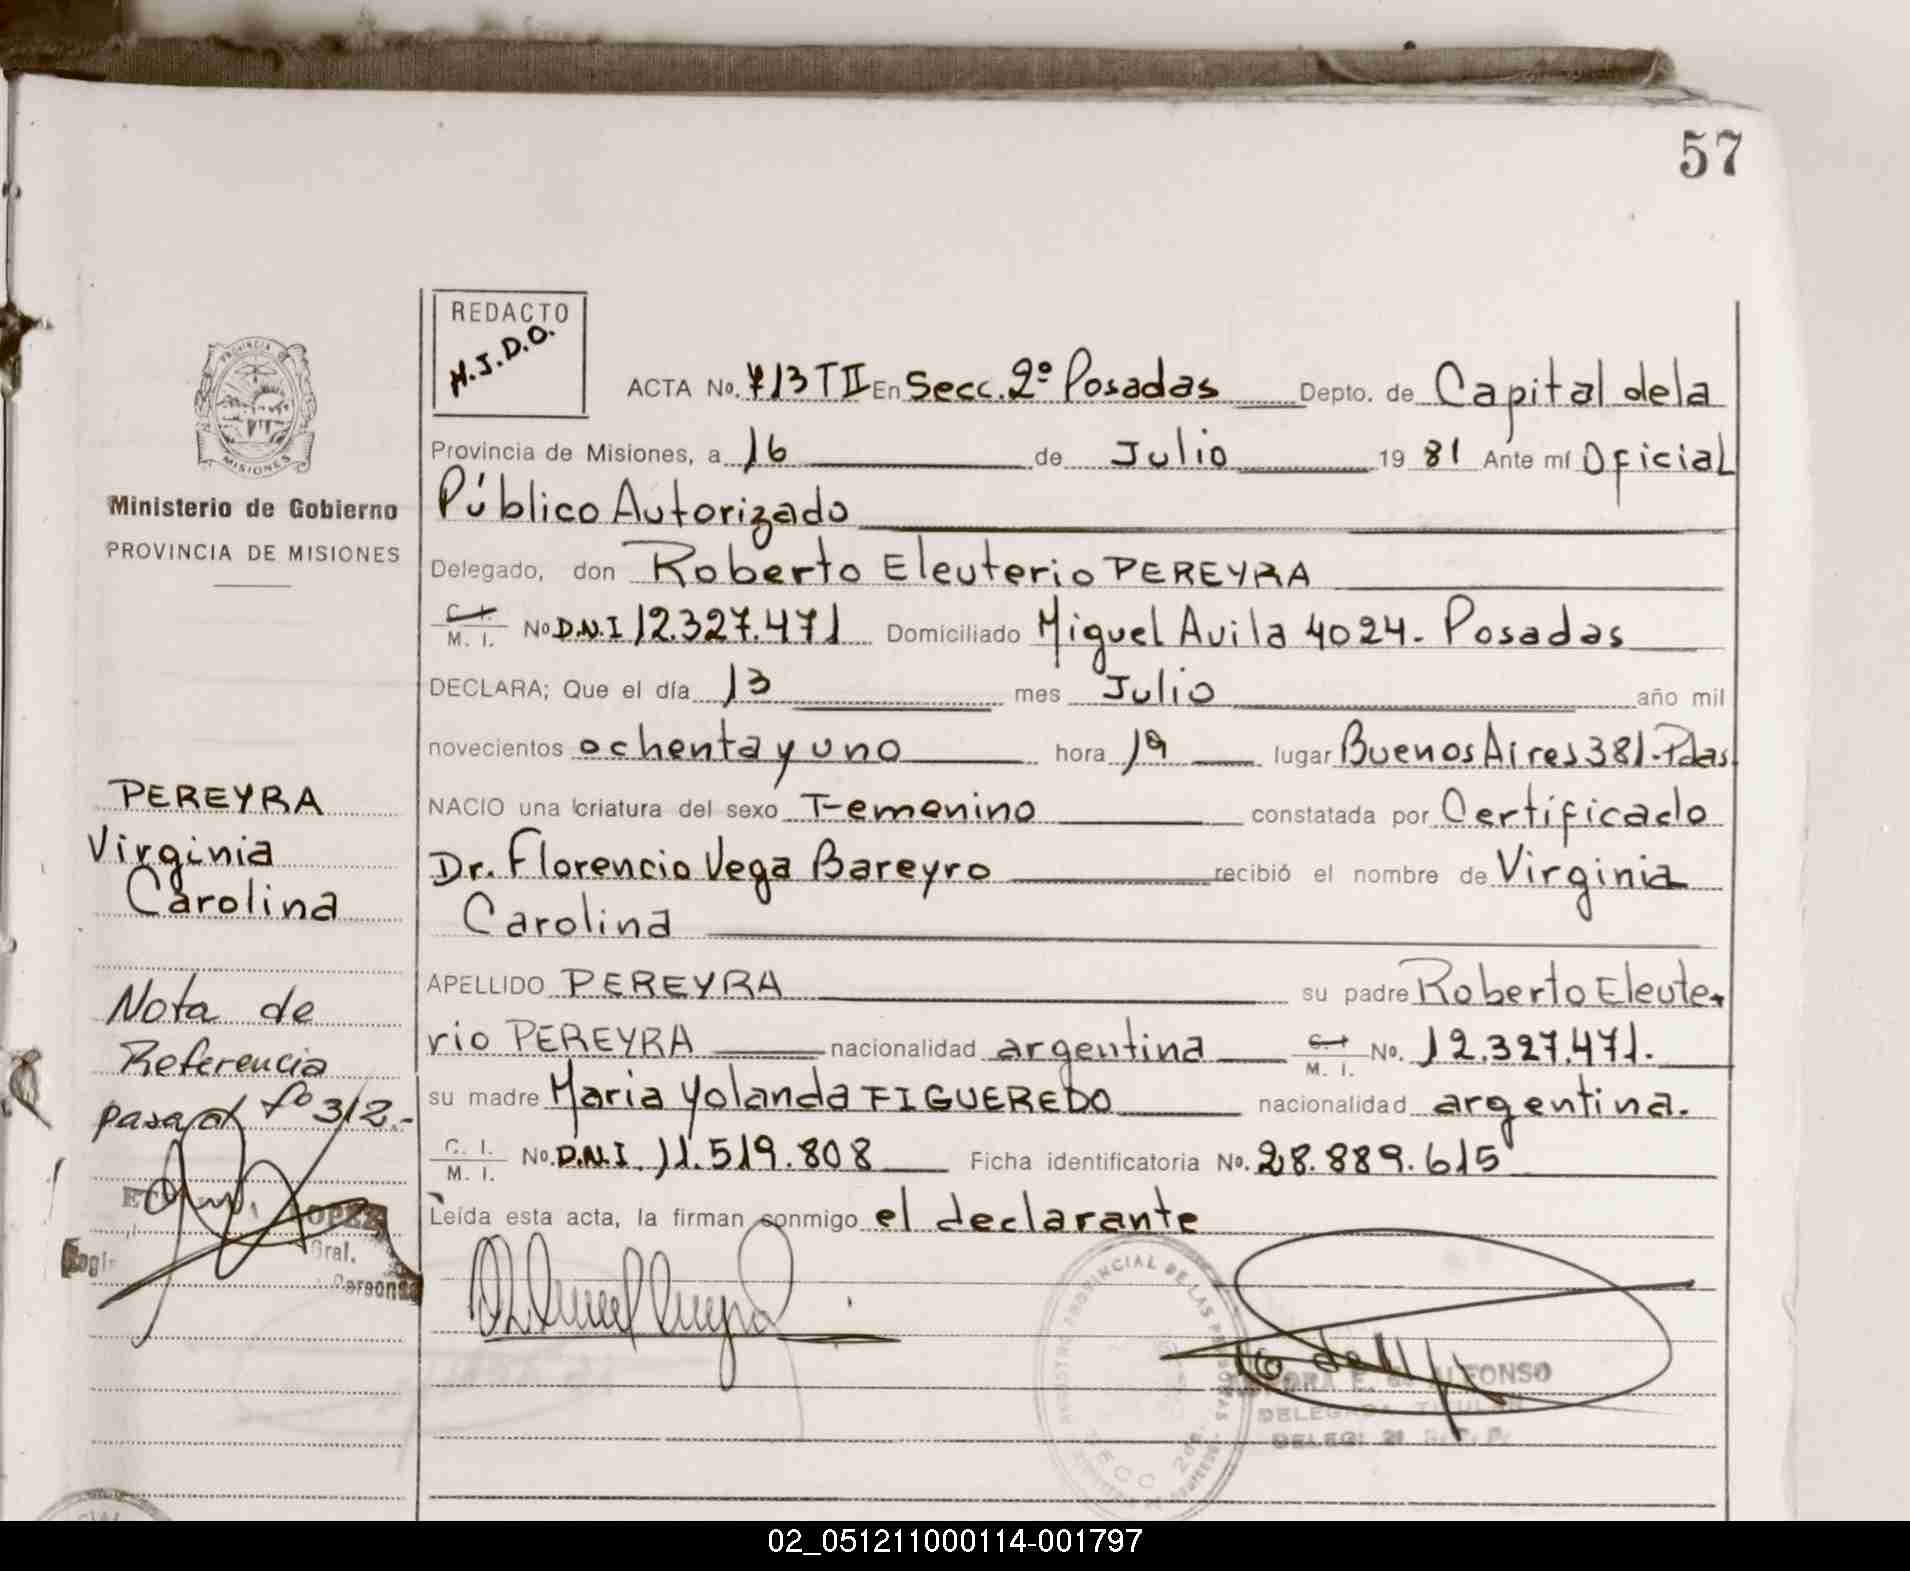 57
REDACTO
H.J.D.O.
PROVINCIA DE
MISIONES
Ministerio de Gobierno
PROVINCIA DE MISIONES
ACTA No. 713 T II En Secc. 2º Posadas Depto. de Capital de la
Provincia de Misiones, a 16 de Julio 19 81 Ante mí Oficial
Público Autorizado
Delegado, don Roberto Eleuterio PEREYRA
C. I. / M. I. No D.N.I 12.327.471 Domiciliado Miguel Avila 4024. Posadas
DECLARA; Que el día 13 mes Julio año mil
novecientos ochenta y uno hora 19 lugar Buenos Aires 381. Pdas.
NACIO una criatura del sexo Femenino constatada por Certificado
Dr. Florencio Vega Bareyro recibió el nombre de Virginia
Carolina
APELLIDO PEREYRA su padre Roberto Eleute-
rio PEREYRA nacionalidad argentina C. I. / M. I. No. 12.327.471.
su madre Maria Yolanda FIGUEREDO nacionalidad argentina.
C. I. / M. I. No. D.N.I. 11.519.808 Ficha identificatoria No. 28.889.615
Leída esta acta, la firman conmigo el declarante
PEREYRA
Virginia
Carolina
Nota de
Referencia
pasa al fº 312.-
LOPEZ
Gral.
Personas
REGISTRO PROVINCIAL DE LAS PERSONAS
SECC 2da.
ALFONSO
DELEGADA TITULAR
02_051211000114-001797